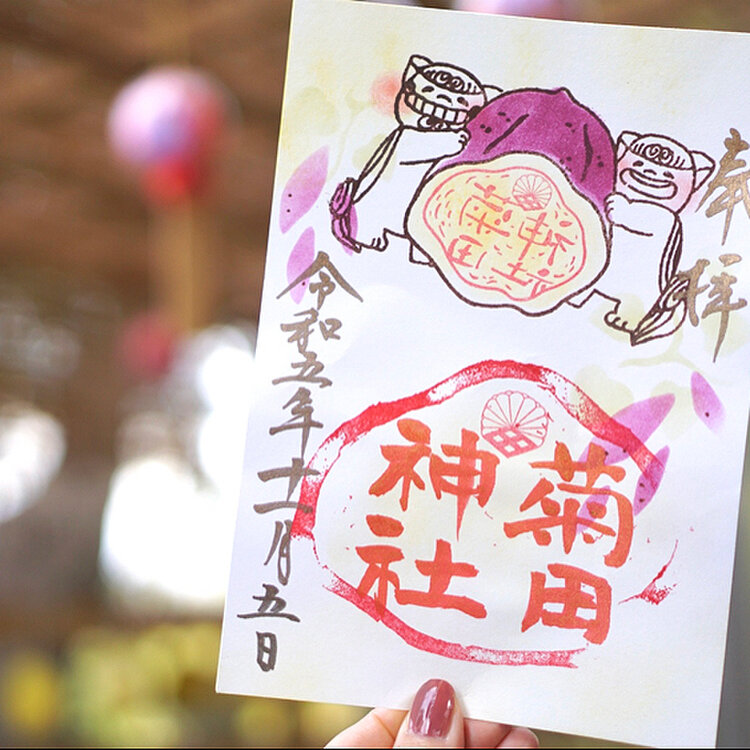 奉拝
菊田
神社
菊田
神社
令和五年十一月五日